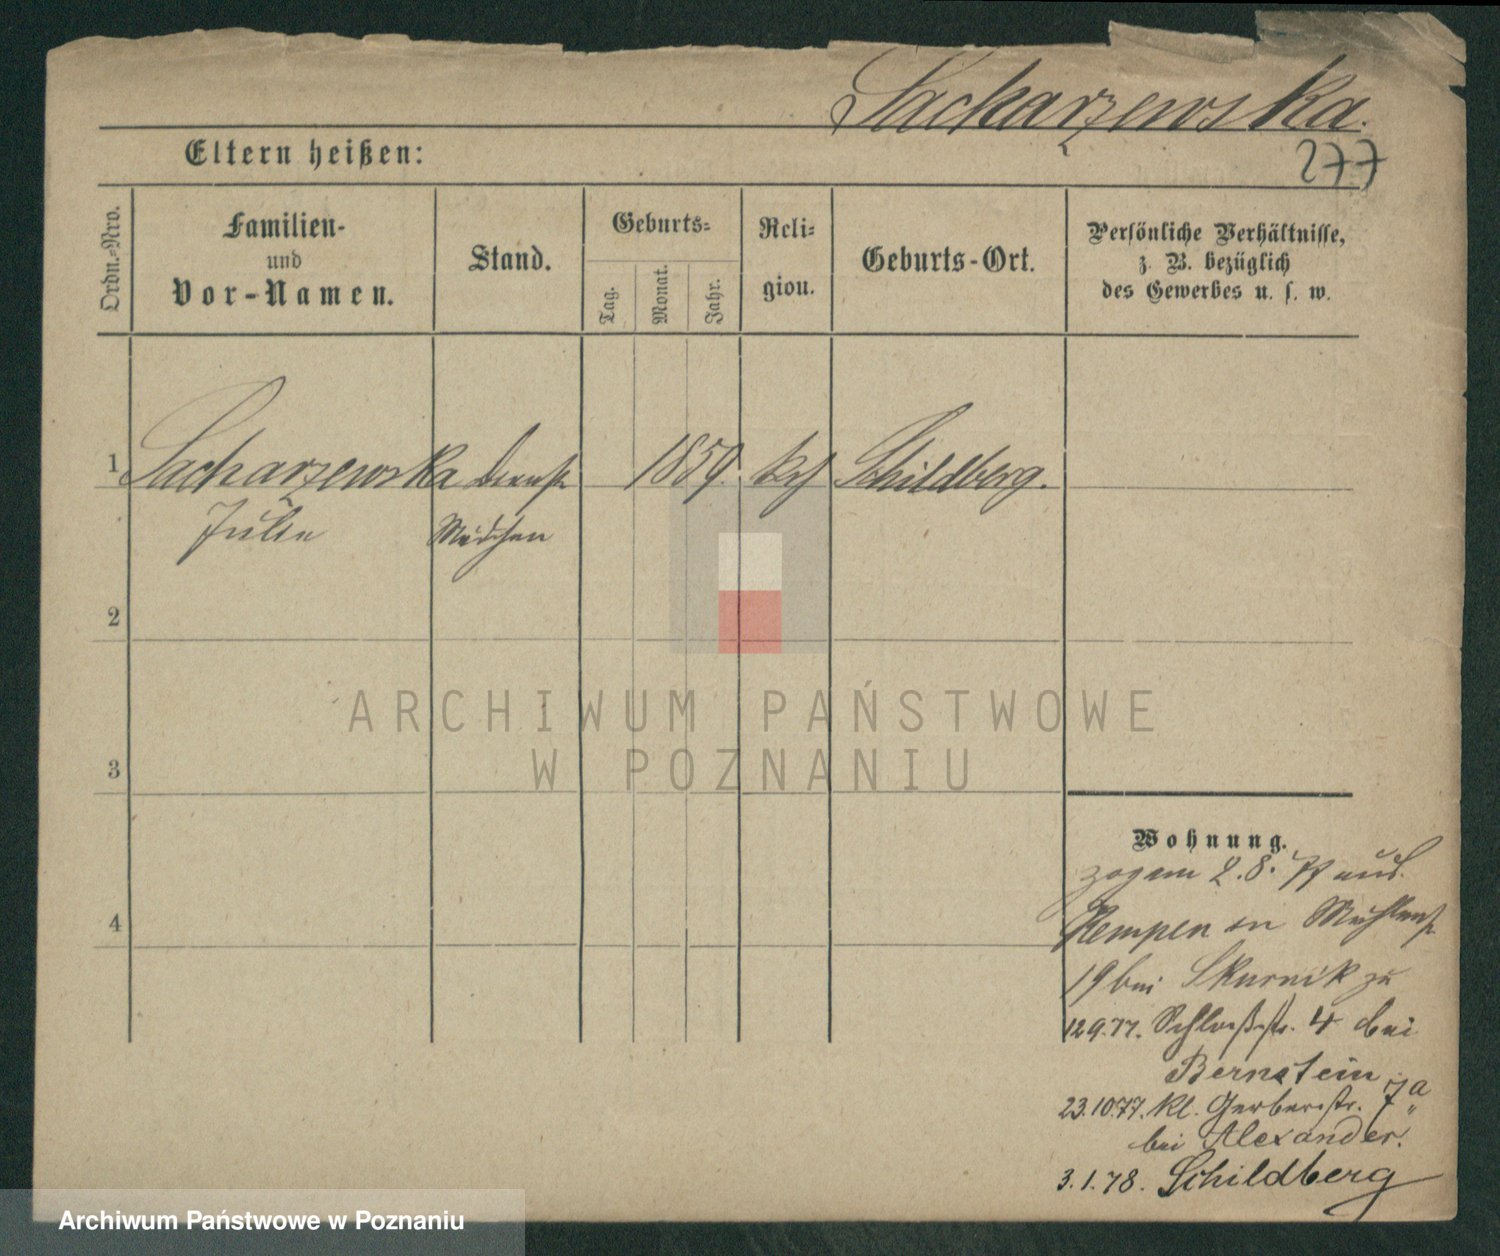 Sackarzewska.
277
Eltern heißen:
Ordn.-Nro.
Familien-
und
Vor-Namen.
Stand.
Geburts-
Tag.
Monat.
Jahr.
Reli-
gion.
Geburts-Ort.
Persönliche Verhältnisse,
z. B. bezüglich
des Gewerbes u. s. w.
1 Sacharzewska Dienst 1859. kth Schildberg.
Julie Mädchen
2
3
4
ARCHIWUM PAŃSTWOWE
W POZNANIU
Wohnung.
zog am 2.8.77 aus
Kempen in Mühlenst
19 bei Skurnik zu
12.9.77. Schloßstr. 4 bei
Bernstein
23.10.77. kl. Gerberstr. 7a
bei Alexander.
3.1.78. Schildberg
Archiwum Państwowe w Poznaniu